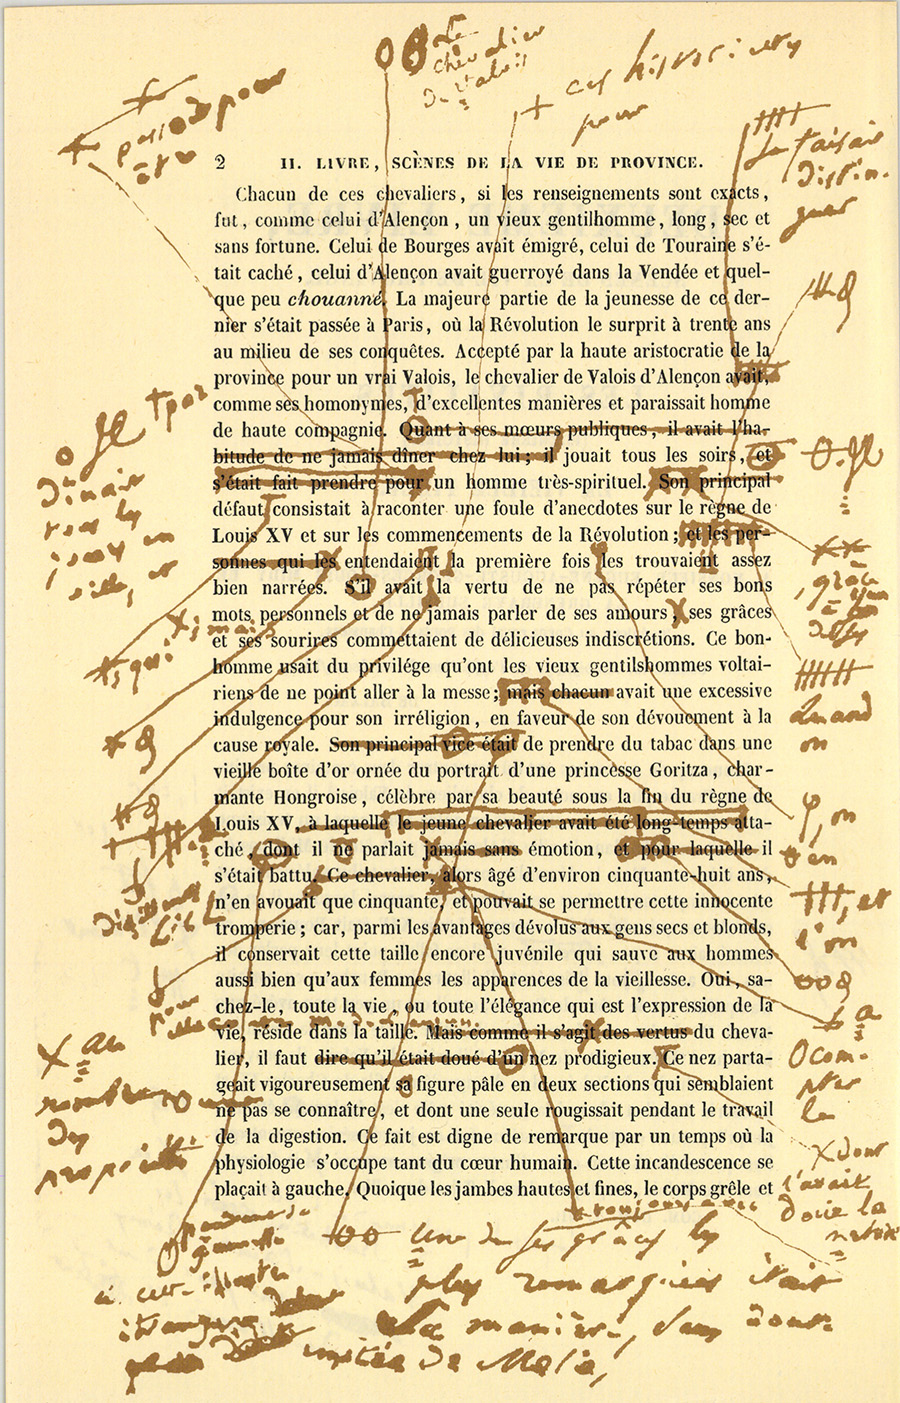 le
chevalier
de Valois
ces
pour
pour
être
se faisait
distin-
guer
2 II. LIVRE, SCÈNES DE LA VIE DE PROVINCE.
Chacun de ces chevaliers, si les renseignements sont exacts,
fut, comme celui d'Alençon, un vieux gentilhomme, long, sec et
sans fortune. Celui de Bourges avait émigré, celui de Touraine s'é-
tait caché, celui d'Alençon avait guerroyé dans la Vendée et quel-
que peu chouanné. La majeure partie de la jeunesse de ce der-
nier s'était passée à Paris, où la Révolution le surprit à trente ans
au milieu de ses conquêtes. Accepté par la haute aristocratie de la
province pour un vrai Valois, le chevalier de Valois d'Alençon avait,
comme ses homonymes, d'excellentes manières et paraissait homme
de haute compagnie. Quant à ses mœurs publiques, il avait l'ha-
bitude de ne jamais dîner chez lui; il jouait tous les soirs, et
s'était fait prendre pour un homme très-spirituel. Son principal
défaut consistait à raconter une foule d'anecdotes sur le règne de
Louis XV et sur les commencements de la Révolution; et les per-
sonnes qui les entendaient la première fois les trouvaient assez
bien narrées. S'il avait la vertu de ne pas répéter ses bons
mots personnels et de ne jamais parler de ses amours, ses grâces
et ses sourires commettaient de délicieuses indiscrétions. Ce bon-
homme usait du privilége qu'ont les vieux gentilshommes voltai-
riens de ne point aller à la messe; mais chacun avait une excessive
indulgence pour son irréligion, en faveur de son dévouement à la
cause royale. Son principal vice était de prendre du tabac dans une
vieille boîte d'or ornée du portrait d'une princesse Goritza, char-
mante Hongroise, célèbre par sa beauté sous la fin du règne de
Louis XV, à laquelle le jeune chevalier avait été long-temps atta-
ché, dont il ne parlait jamais sans émotion, et pour laquelle il
s'était battu. Ce chevalier, alors âgé d'environ cinquante-huit ans,
n'en avouait que cinquante, et pouvait se permettre cette innocente
tromperie; car, parmi les avantages dévolus aux gens secs et blonds,
il conservait cette taille encore juvénile qui sauve aux hommes
aussi bien qu'aux femmes les apparences de la vieillesse. Oui, sa-
chez-le, toute la vie, ou toute l'élégance qui est l'expression de la
vie, réside dans la taille. Mais comme il s'agit des vertus du cheva-
lier, il faut dire qu'il était doué d'un nez prodigieux. Ce nez parta-
geait vigoureusement sa figure pâle en deux sections qui semblaient
ne pas se connaître, et dont une seule rougissait pendant le travail
de la digestion. Ce fait est digne de remarque par un temps où la
physiologie s'occupe tant du cœur humain. Cette incandescence se
plaçait à gauche. Quoique les jambes hautes et fines, le corps grêle et
Il
dinait
tous les
; mais
; qui
au
nombre
des
propriétés
Il
Quand
on
, on
en
, et
l'on
a
com-
pter
la
dont
l'avait
douée la
nature
Une de ses grâces les
plus remarquées était
La manière, sans doute
imitée de Molé,